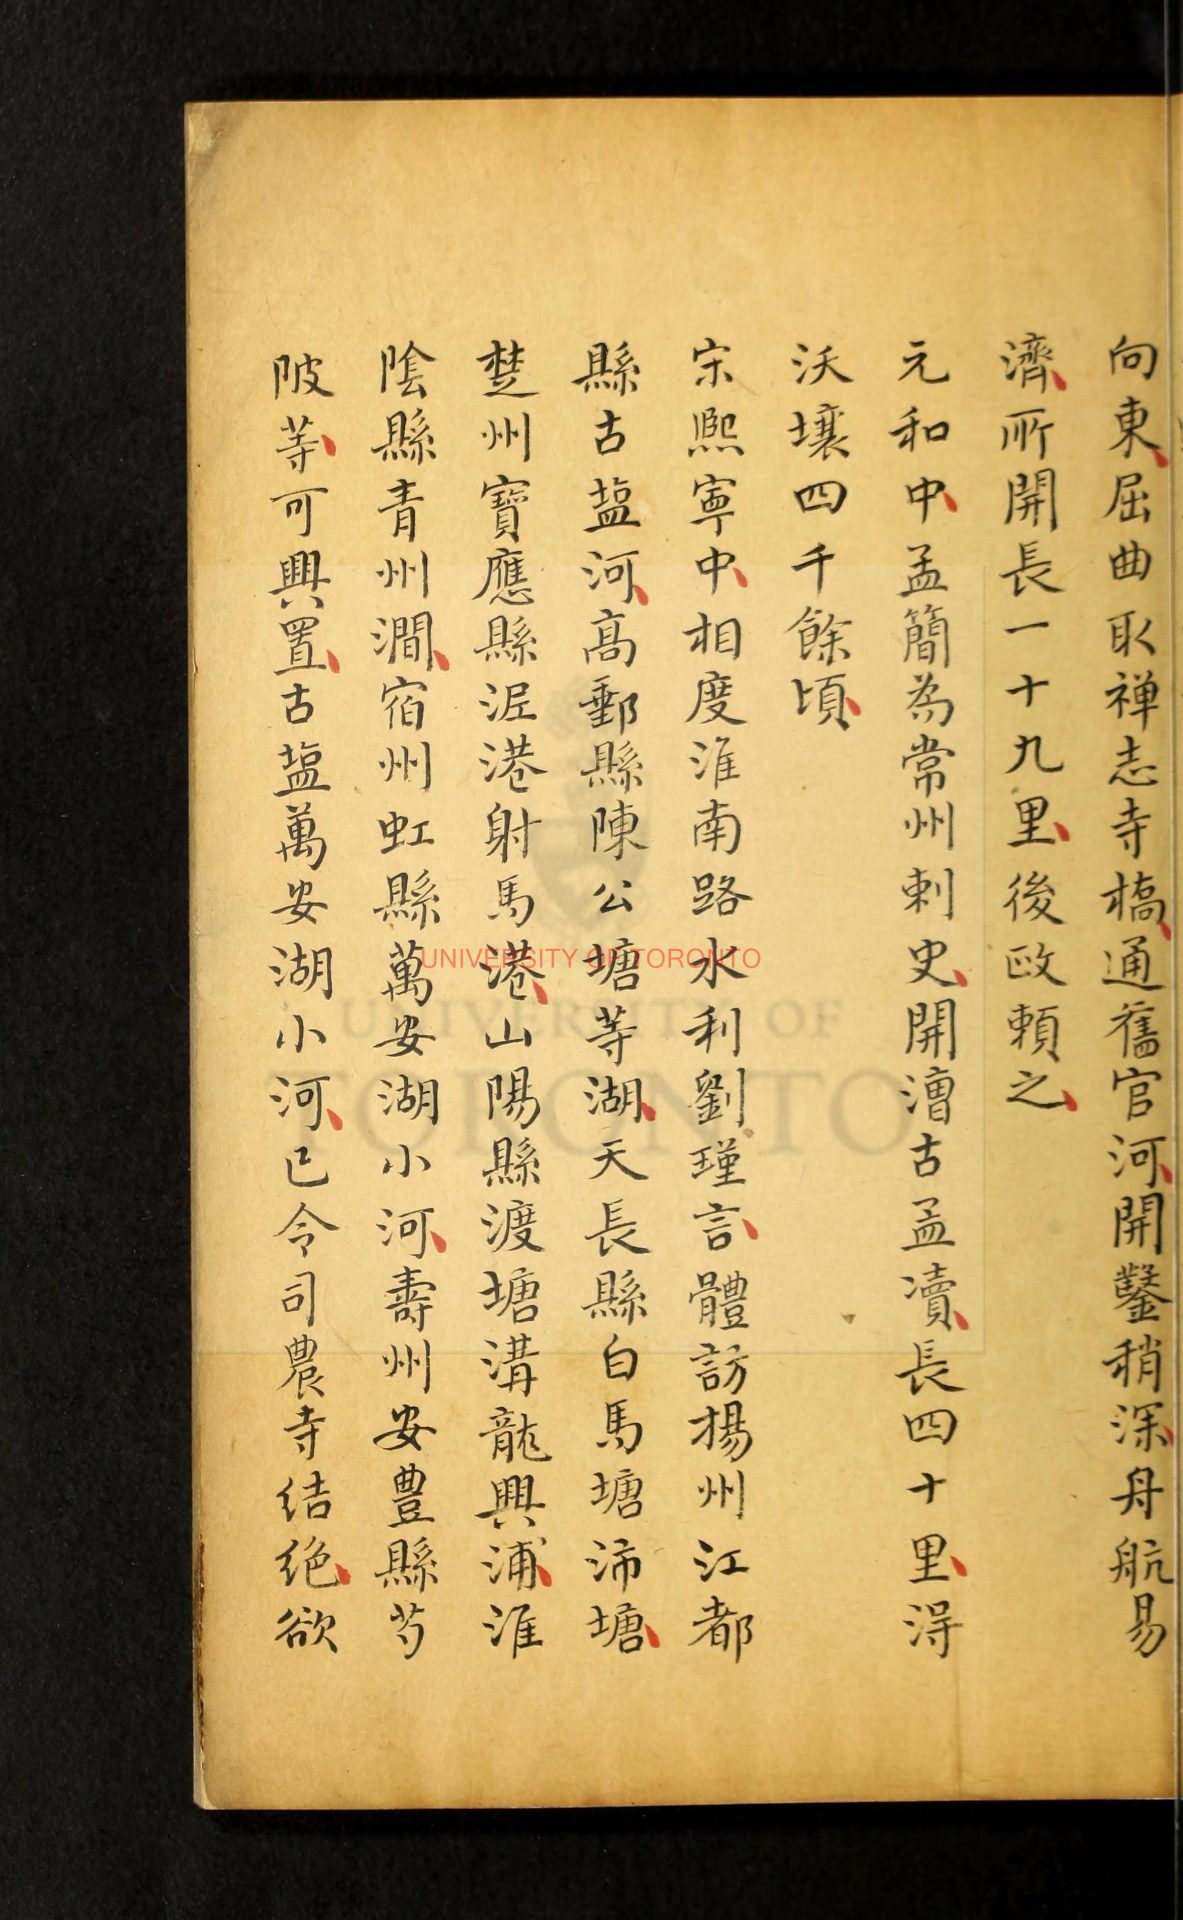 向東屈曲取禅志寺橋通舊官河開鑿稍深舟航易
濟所開長一十九里後政賴之
元和中孟簡為常州刺史開漕古孟瀆長四十里淂
沃壤四千餘頃
宋熈寧中相度淮南路水利劉瑾言體訪揚州江都
縣古塩河髙郵縣陳公塘等湖天長縣白馬塘沛塘
楚州寶應縣泥港射馬港山陽縣渡塘溝龍興浦淮
隂縣青州澗宿州虹縣萬安湖小河壽州安豊縣芍
陂等可興置古塩萬安湖小河已令司農寺结絶欲
UNIVERSITY OF TORONTO
UNIVERSITY OF
TORONTO